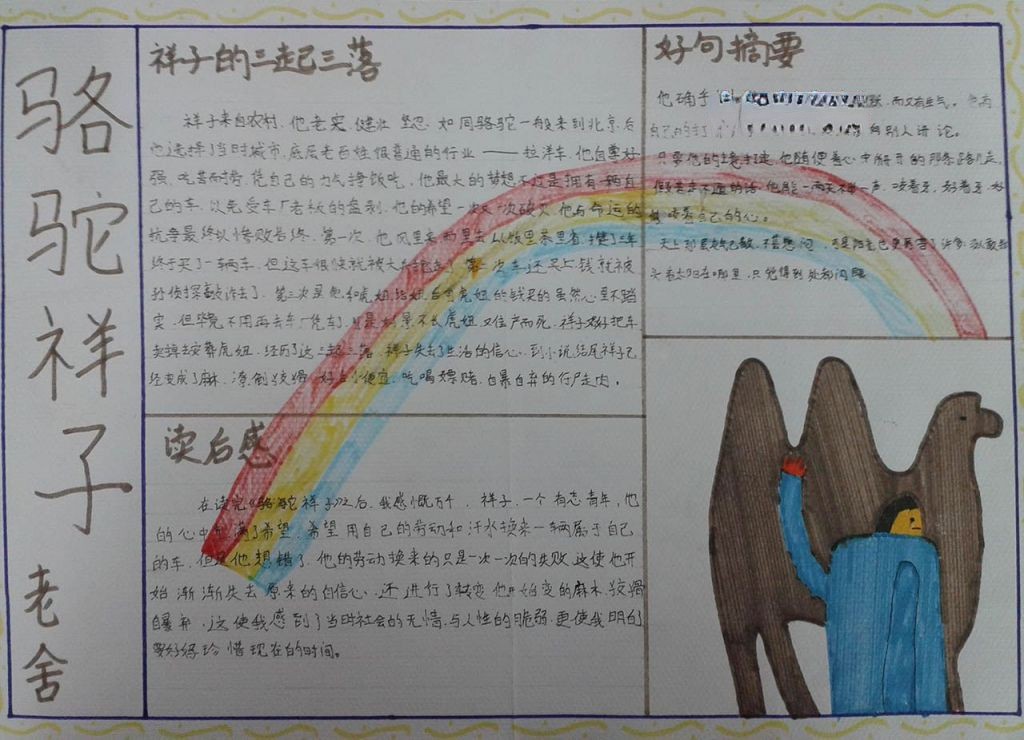 骆驼祥子
老舍
祥子的三起三落
祥子来自农村，他老实、健壮、坚忍，如同骆驼一般来到北京后
他选择了当时城市，底层老百姓很普通的行业——拉洋车，他自尊好
强，吃苦耐劳，凭自己的力气挣饭吃，他最大的梦想不过是拥有一辆自
己的车，以免受车厂老板的盘剥，他的希望一次又一次破灭，他与命运的
抗争最终以惨败告终。第一次，他风里来雨里去从饭里茶里省，攒了三年
终于买了一辆车，但这车很快就被大兵
第二次车还没上钱就被
孙侦探敲诈去了，第三次是
虎妞的钱买的虽然心里不踏
实，但毕竟不用再去车厂凭车了，
景不长虎妞又住产而死，祥子
好把车
卖掉去安葬虎妞，经历了这三起三落，祥子失去了生活的信心，到小说结尾祥子已
经变成了麻木、潦倒、狡猾、好占小便宜，吃喝嫖赌，自暴自弃的行尸走肉。
读后感
在读完《骆驼祥子》之后，我感慨万千，祥子，一个有志青年，他
的心中充满了希望，希望用自己的劳动和汗水换来一辆属于自己
的车，但是他想错了，他的劳动换来的只是一次一次的失败，这使他开
始渐渐失去原来的自信心，还进行了转变，他开始变的麻木、狡猾
自暴弃，这使我感到了当时社会的无情与人性的脆弱，更使我明白了
要好好珍惜现在的时间。
好句摘要
他确乎
而又有生气。
自己的打
向别人讲论。
只要他的主意打定，他随便着心中所开的那条路儿走，
假若走不通的话，他能一两天不出一声，咬着牙，好
着自己的心。